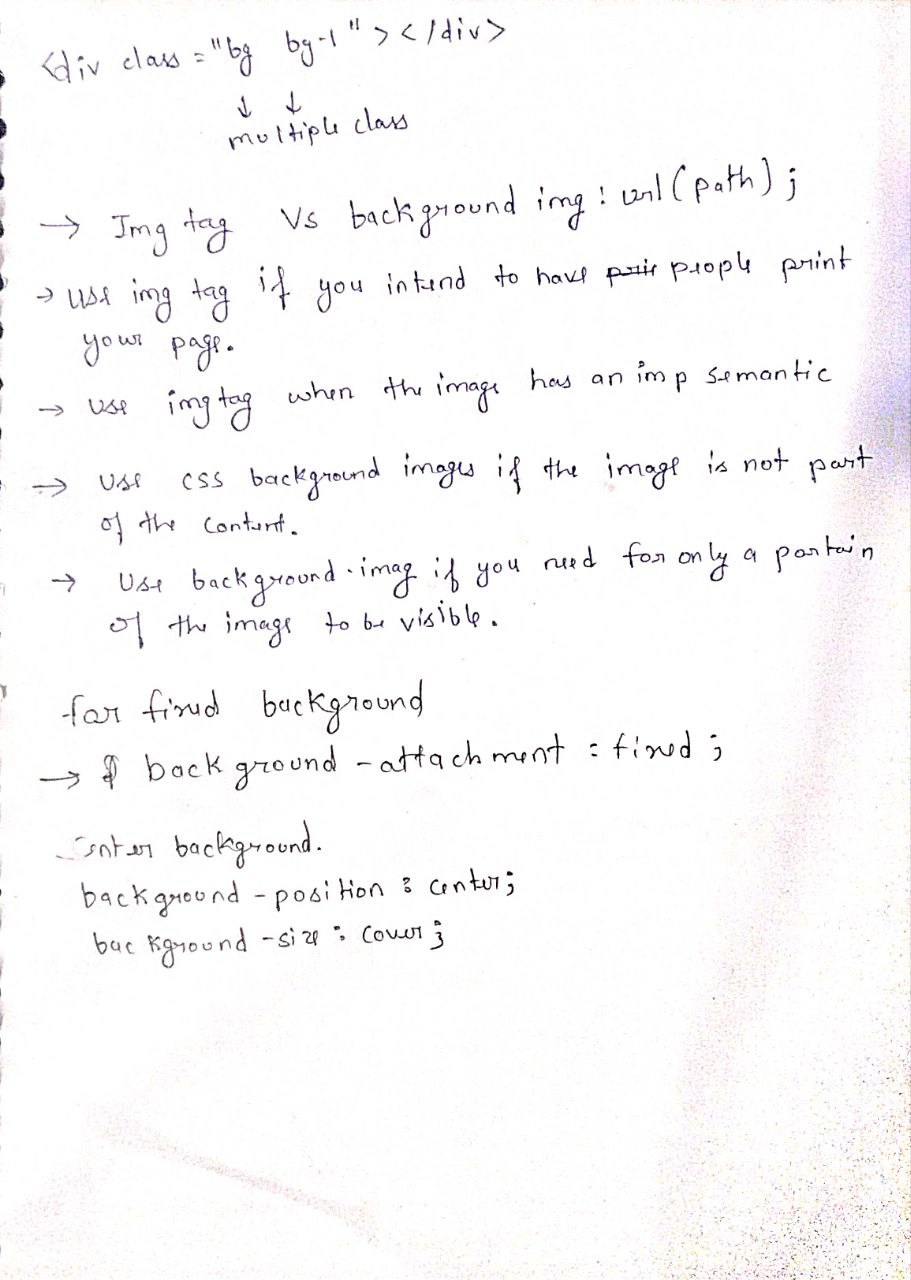 <div class="bg bg-1"></div>
↓ ↓
multiple class
→ Img tag Vs background img: url(path);
→ use img tag if you intend to have people print
your page.
→ use img tag when the image has an imp semantic
→ Use css background images if the image is not part
of the content.
→ Use background-imag if you need for only a portain
of the image to be visible.
for fixed background
→ background-attachment : fixed;
center background.
background-position : center;
background-size : cover;